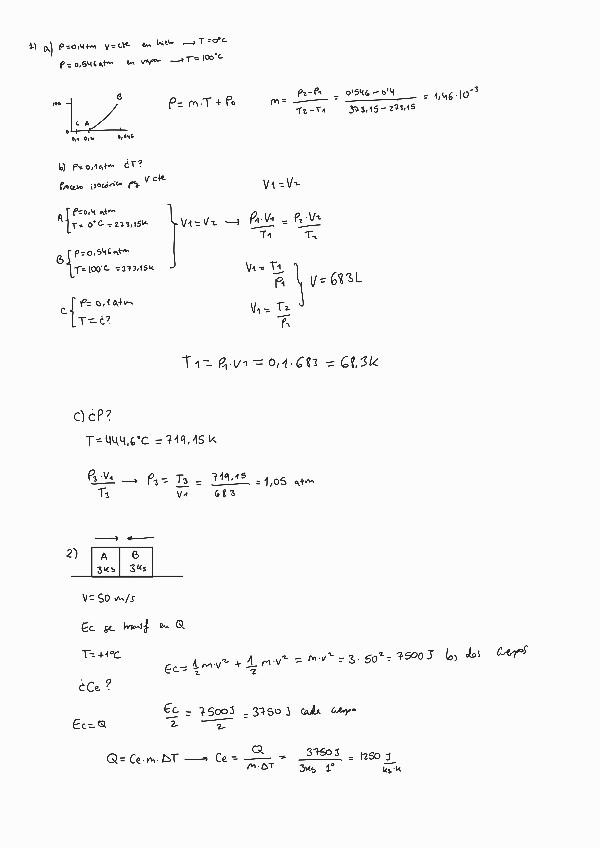 1) a) P=0,4 atm V=cte en hielo → T=0°C
P=0,546 atm en vapor → T=100°C
100
B
C A
0
0,1 0,4 0,546
P=m.T+P0 m= P2-P1 / T2-T1 = 0'546-0'4 / 373,15-273,15 = 1,46·10^-3
b) P=0,1 atm ¿T?
Proceso isocórico pq V cte
V1=V2
A P=0,4 atm
T=0°C=273,15K
V1=V2 → P1·V1 / T1 = P2·V2 / T2
B P=0,546 atm
T=100°C=373,15K
V1= T1 / P1
V=683L
V1= T2 / P2
C P=0,1 atm
T=¿?
T1=P1·V1=0,1·683=68,3K
c) ¿P?
T=444,6°C=719,15K
P3·V1 / T3 → P3= T3 / V1 = 719,15 / 683 = 1,05 atm
2)
A B
3kg 3kg
V=50 m/s
Ec se transf en Q
T=+1°C
Ec= 1/2 m·v² + 1/2 m·v² = m·v² = 3·50² = 7500J los dos cuerpos
¿Ce?
Ec=Q
Ec / 2 = 7500J / 2 = 3750J cada cuerpo
Q=Ce·m·ΔT → Ce= Q / m·ΔT = 3750J / 3kg 1° = 1250 J / kg·K